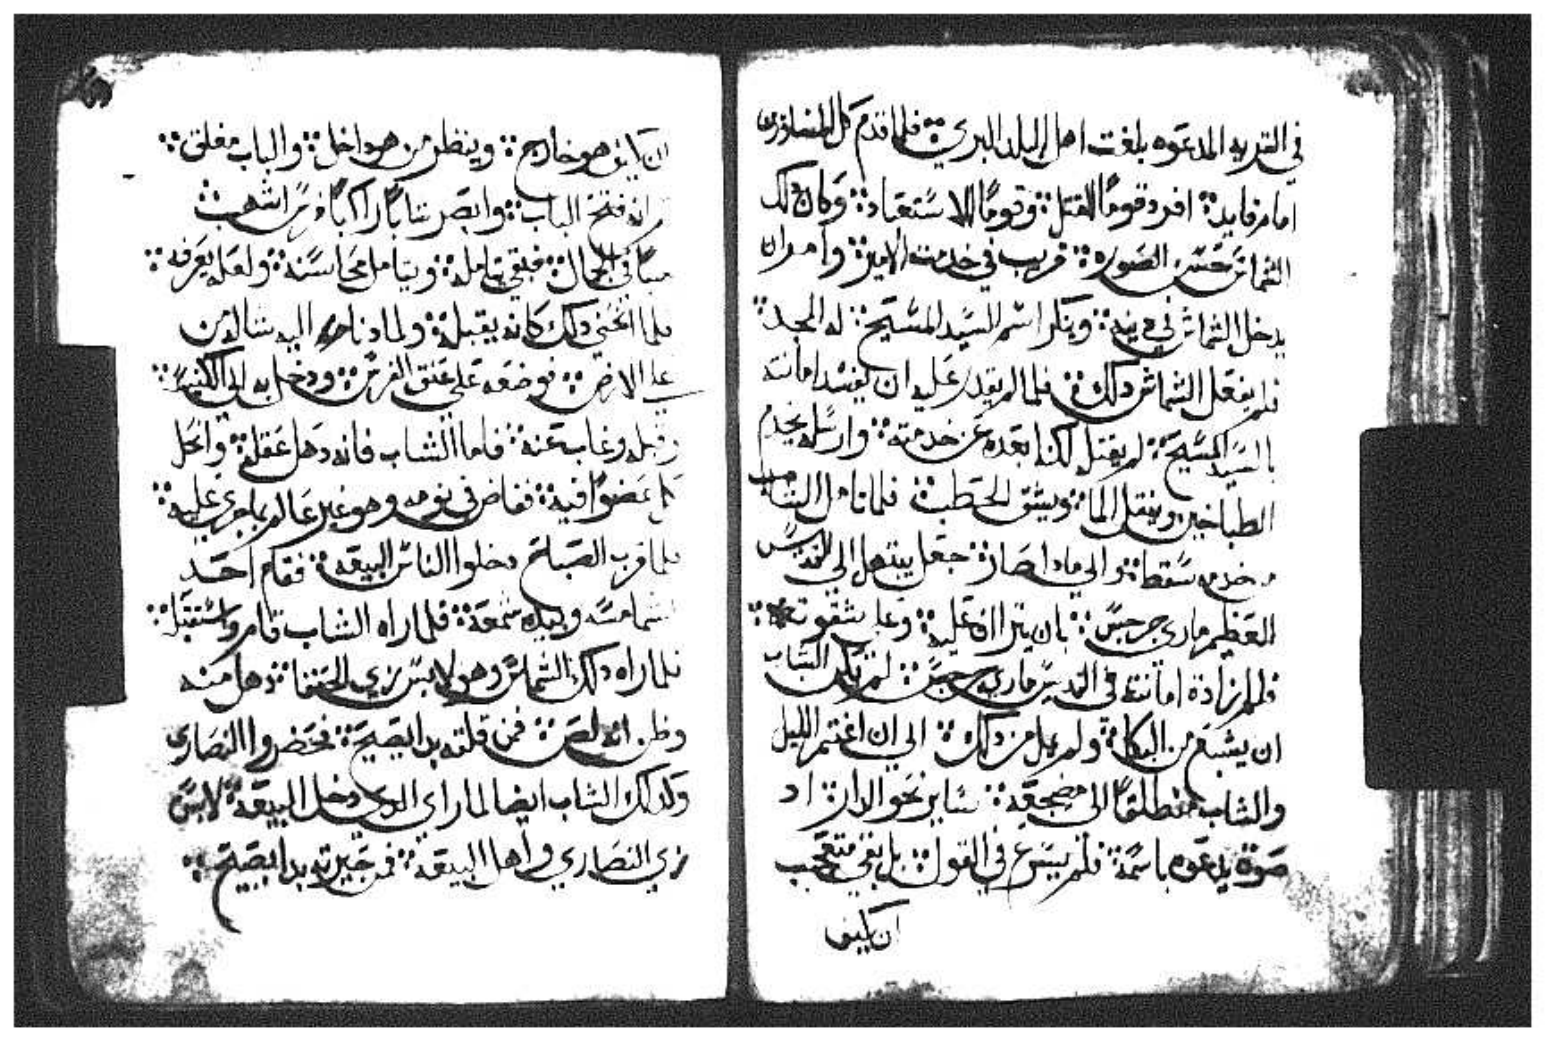 في القريه المدعوه بلغت اهل البلد البري ⁘ فلما قدم كل الماسورين
امام قايده ⁘ افرد قومًا للقتل ⁘ وقومًا للاستعباد ⁘ وكان دلك
الشماس حسن الصوره ⁘ قريب في خدمة الامير ⁘ وامر ان
يدخل الشماس في دينه ⁘ وينكر اسم السيد المسيح ⁘ له المجد ⁘
فلم يفعل الشماس دلك ⁘ فلما لم يقدر عليه ان يفسد امانته
بالسيد المسيح ⁘ لم يقتله لكنه ابعده عن خدمته ⁘ وارسله يخدم
الطباخين وينقل الما ⁘ ويشق الحطب ⁘ فلما تامل الشاب
خدمه سقط ⁘ والي مادا صار ⁘ جعل يبتهل الي القديس
العظيم ماري جرجس ⁘ بان يتراف عليه ⁘ وعلي شقوته ⁘
فلم زادة امانته في القديس ماري جرجس ⁘ لم يكن الشاب
ان يشبع من البكا ⁘ ولم يمل من دلك ⁘ الي ان اغتم الليل
والشاب منطلقًا الي مضجعه ⁘ ساير نحو الدار ⁘ اد
صوة يدعوه باسمه ⁘ فلم يسرع في القول ⁘ بل بقي متعجب
ان كيف
ان كيف هو خارج ⁘ وينظر من هو داخل ⁘ والباب مغلق ⁘
انه فتح الباب ⁘ وابصر شابًا راكبًا فرس اشهب
في الجمال ⁘ فبقي يتامله ⁘ ويتامل محاسنه ⁘ ولعله يعرفه ⁘
فلما انحني دلك كانه يقبله ⁘ ولما دنا اليه شاله من
علي الارض ⁘ فوضعه علي عنق الفرس ⁘ ودخل به الي الكنيسة ⁘
وغاب عنه ⁘ فاما الشاب فانه دهل عقله ⁘ وانحل
كل عضوًا فيه ⁘ فغاص في نومه وهو غير عالم بما جري عليه ⁘
فلما قرب الصباح دخلوا الناس البيعه ⁘ فقام احد
شمامسه وبيده شمعة ⁘ فلما راه الشاب قام واستقبله ⁘
فلما راه دلك الشماس وهو لابس زي الحنفا ⁘ دهل منه
وظن انه لص ⁘ فمن قلقه بدا يصيح ⁘ فحضروا النصاري
وكدلك الشاب ايضا لما راي الدي دخل البيعه ⁘ لابس
زي النصاري واهل البيعه ⁘ فمن حيرته بدا يصيح ⁘